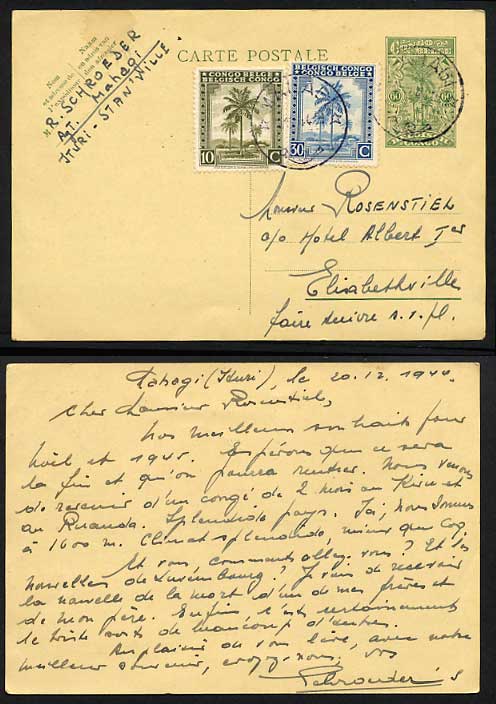 Nom
Naam
R. SCHROEDER
AT. Mahagi
ITURI - STAN-VILLE
CARTE POSTALE
BELGISCH CONGO
CONGO BELGE
10 C
CONGO BELGE
BELGISCH CONGO
30 C
60 60
CONGO
Monsieur ROSENSTIEL
c/o Hotel Albert Ier
Elisabethville
faire suivre s.v.pl.
Mahagi (Ituri), le 20.12.1944.
Cher Monsieur Rosenstiel,
Nos meilleurs souhaits pour
Noël et 1945. Espérons que ce sera
la fin et qu'on pourra rentrer. Nous venons
de revenir d'un congé de 2 mois au Kivu et
au Ruanda. Splendide pays. Ici, nous sommes
à 1600 m. Climat splendide, mieux que Coq.
Et vous, comment allez-vous? Et les
nouvelles de Luxembourg? Je viens de recevoir
la nouvelle de la mort d'un de mes frères et
de mon père. Enfin c'est certainement
le triste sort de beaucoup d'autres.
Au plaisir de vous lire, avec notre
meilleur souvenir, croyez-nous, vos
Schroeder's